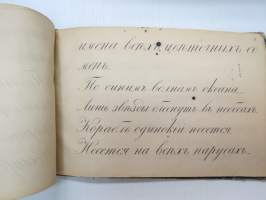 имена всѣхъ цвѣточныхъ сѣ
менъ.
По синимъ волнамъ океана
Лишь звѣзды блеснутъ въ небесахъ
Корабль одинокій несется
Несется на всѣхъ парусахъ.